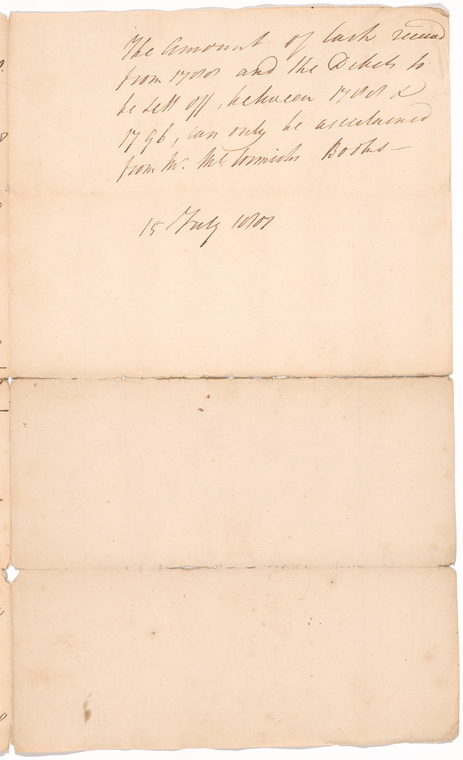 The Amount of Cash received
from 1788 and the Debets to
be sett off, between 1788 &
1796, can only be ascertained
from Mr. McCormicks Books—
15 July 1801